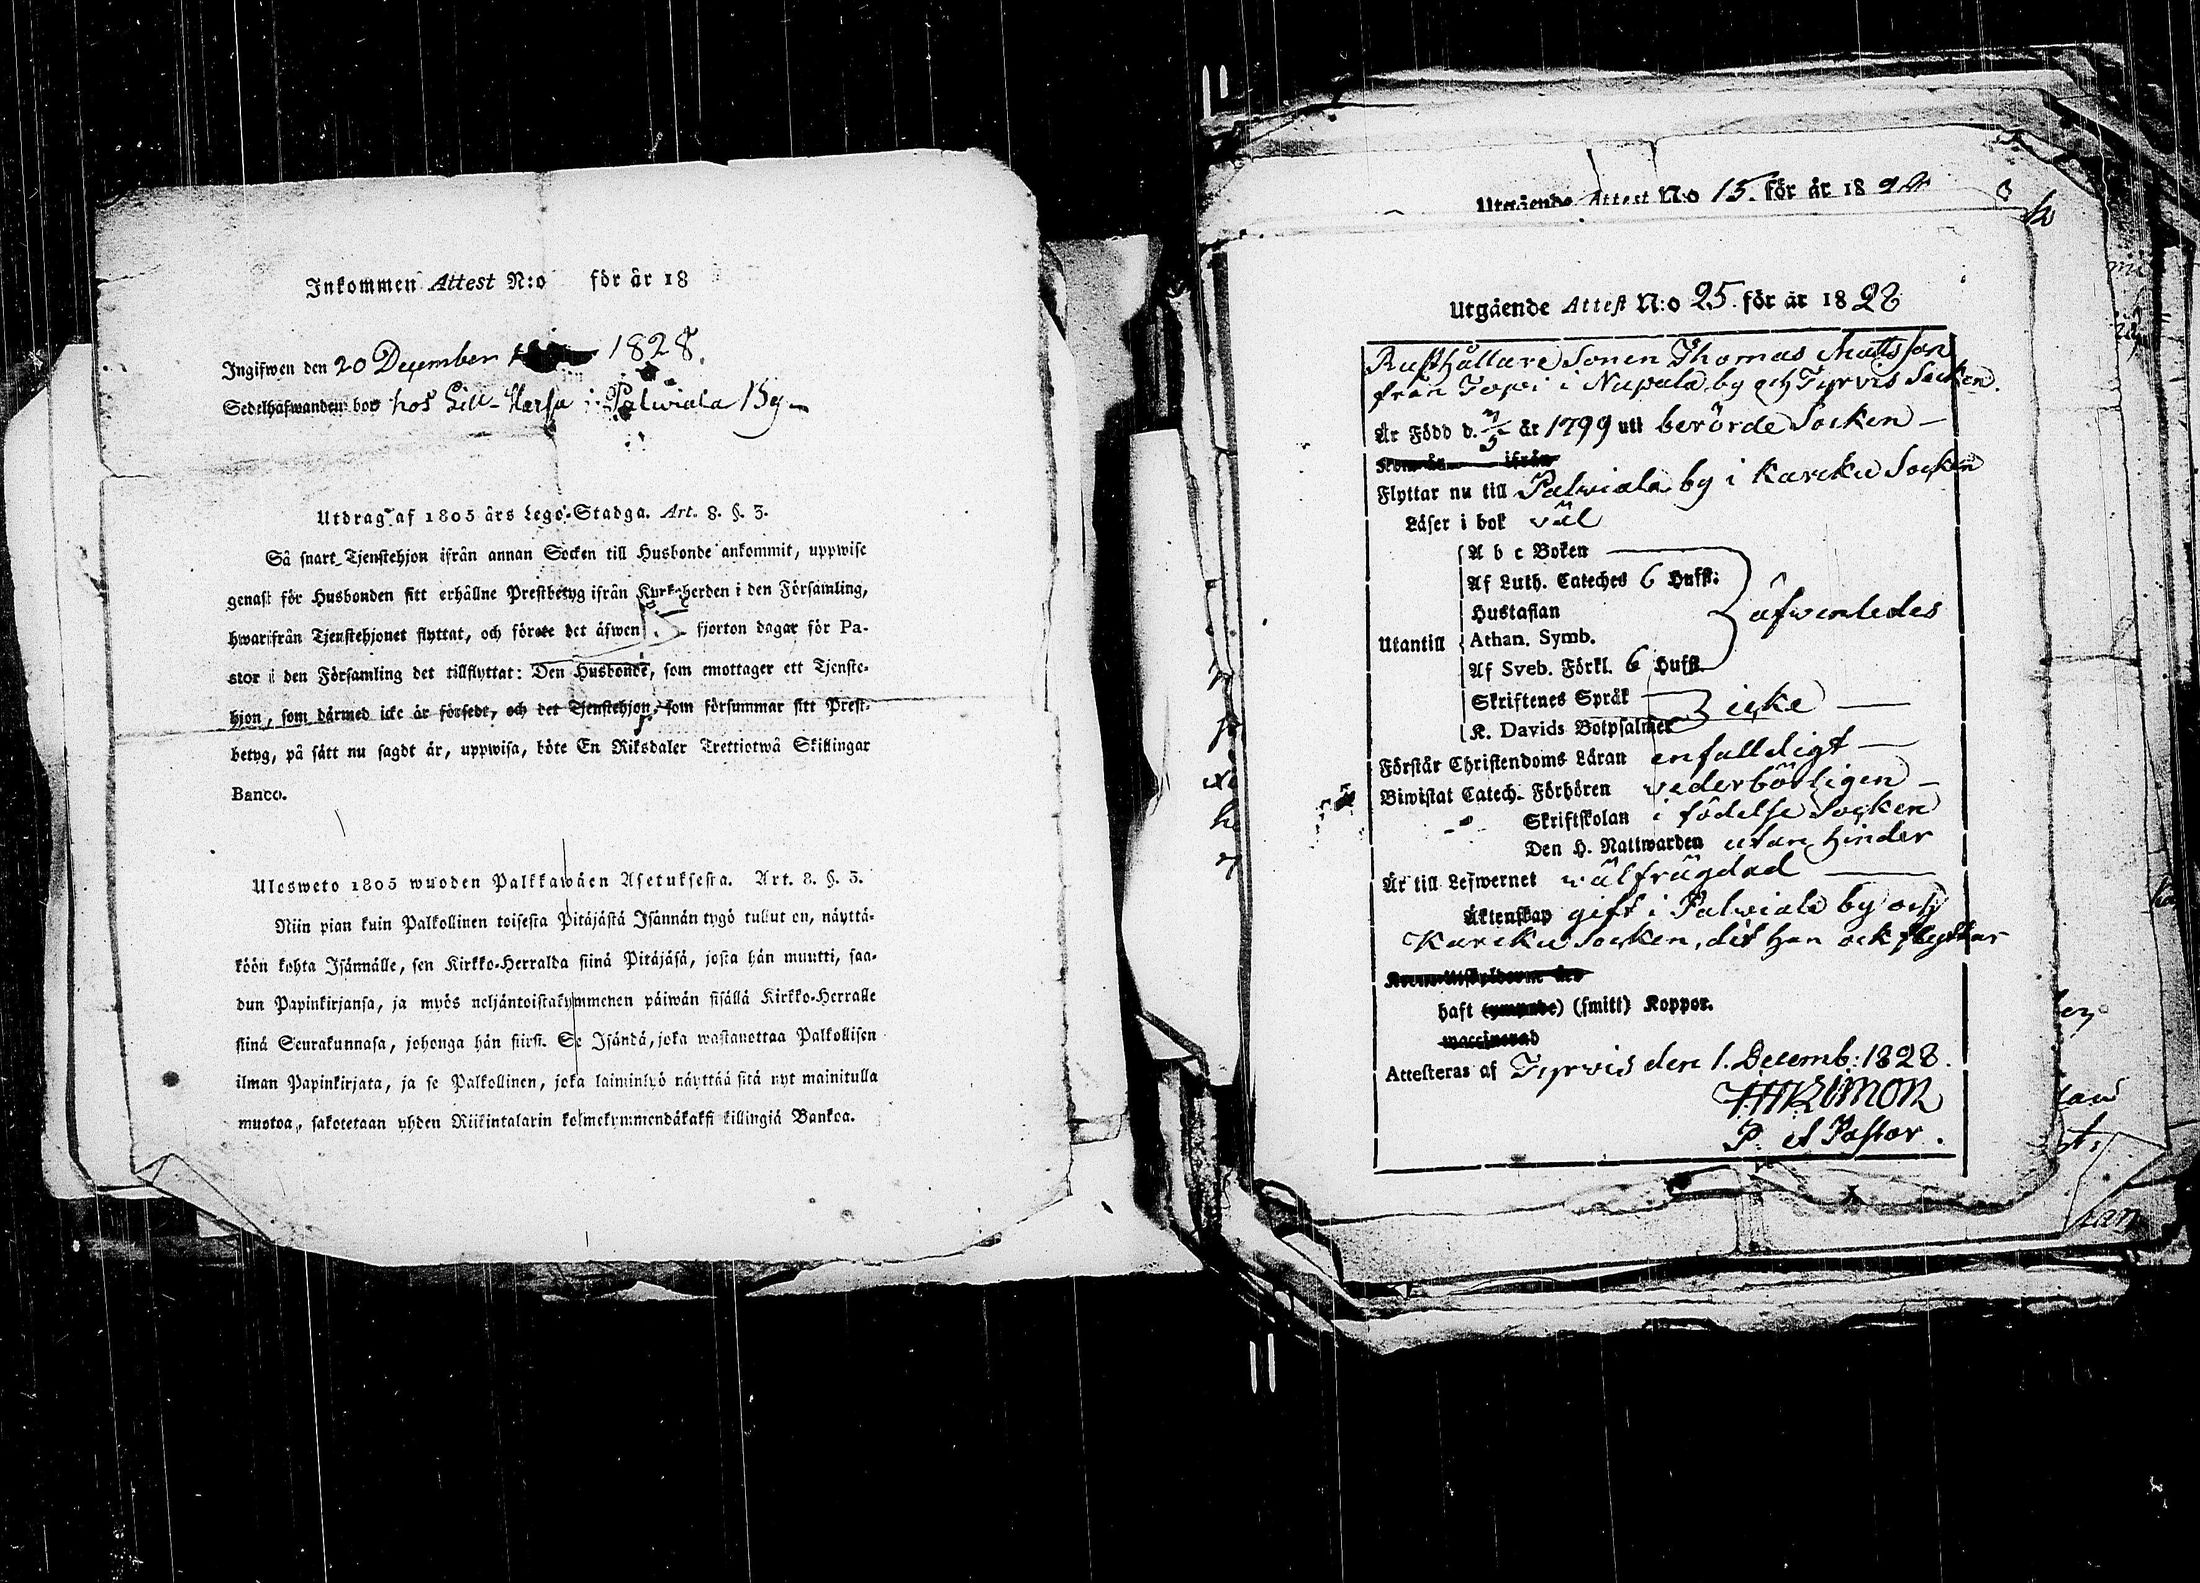 Inkommen Attest N:o för år 18
Ingifwen den 20 December 1828.
Sedelhafwanden bor hos Lill-Harsu i Palwiala By
Utdrag af 1805 års Lego-Stadga. Art. 8. §. 3.
Så snart Tjenstehjon ifrån annan Socken till Husbonde ankommit, uppwise
genast för Husbonden sitt erhållne Prestbetyg ifrån Kyrkoherden i den Församling,
hwarifrån Tjenstehjonet flyttat, och förete det äfwen fjorton dagar för Pa-
stor i den Församling det tillflyttat: Den Husbonde, som emottager ett Tjenste-
hjon, som därmed icke är försedt, och det Tjenstehjon, som försummar sitt Prest-
betyg, på sätt nu sagdt är, uppwisa, böte En Riksdaler Trettiotwå Skillingar
Banco.
Ulosweto 1805 wuoden Palkkawäen Asetuksesta. Art. 8. §. 3.
Niin pian kuin Palkollinen toisesta Pitäjästä Isännän tygö tullut on, näyttä-
köön kohta Isännälle, sen Kirkko-Herralda siinä Pitäjäsä, josta hän muutti, saa-
dun Papinkirjansa, ja myös neljäntoistakymmenen päiwän sisällä Kirkko-Herralle
siinä Seurakunnasa, johonga hän siirsi. Se Isändä, joka wastanottaa Palkollisen
ilman Papinkirjata, ja se Palkollinen, joka laiminlyö näyttää sitä nyt mainitulla
muotoa, sakotetaan yhden Riikintalarin kolmekymmendäkaksi killingiä Bankoa.
Utgående Attest N:o 15. för år 18
Utgående Attest N:o 25. för år 1828
Rusthållare Sonen Thomas Mattsson
från Topi i Nupala by och Tyrvis Socken.
Är Född d. 7/5 år 1799 uti berörde Socken
ifrån
Flyttar nu till Palwiala by i Karcku Socken
Läser i bok väl
A b c Boken
Af Luth. Cateches 6 Hufst:
Hustaflan
äfwenledes
Utantill Athan. Symb.
Af Sveb. Förkl. 6 Hufst
Skriftenes Språk
icke
K. Davids Botpsalmer
Förstår Christendoms Läran enfalldigt
Biwistat Catech. Förhören vederbörligen
Skriftskolan i födelse Socken
Den H. Nattwarden utan hinder
Är till Lefwernet wälfrägdad
Äktenskap gift i Palwiala by och
Karcku Socken, dit han ock flyttar
haft (ympade) (smitt) Koppor.
waccinerad
Attesteras af Tyrvis den 1. Decemb: 1828.
P. et Pastor.